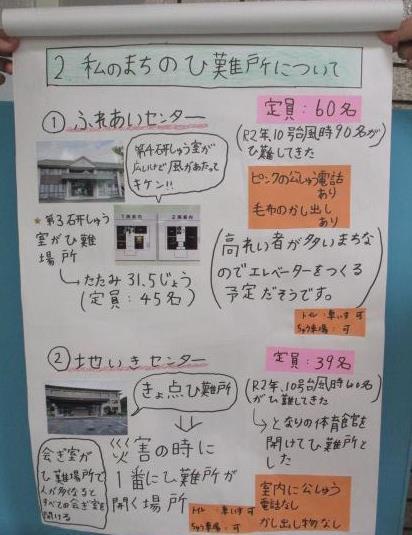 2 私のまちのひ難所について
① ふれあいセンター
定員：60名
(R2年、10号台風時90名が
ひ難してきた
第4研しゅう室が
広いけど風があたって
キケン!!
ピンクの公しゅう電話
あり
毛布のかし出し
あり
★第3研しゅう
室がひ難
場所
→たたみ31.5じょう
(定員：45名)
1階案内
2階案内
(高れい者が多いまちな
のでエレベーターをつくる
予定だそうです。
トイレ：車いす可
ちゅう車場：可
② 地いきセンター
定員：39名
きょ点ひ難所
(R2年、10号台風時60名
がひ難してきた
→となりの体育館を
開けてひ難所と
した
災害の時に
1番にひ難所が
開く場所
会ぎ室が
ひ難場所で
人が多くなると
すべての会ぎ室を
開ける
トイレ：車いす可
ちゅう車場：可
室内に公しゅう
電話なし
かし出し物なし